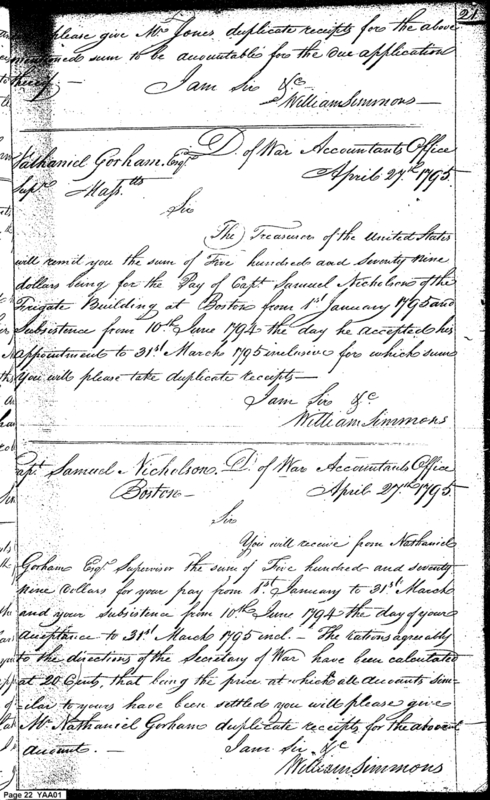 21
please give Mr. Jones duplicate receipts for the above
mentioned sum to be accountable for the due application
thereof —
I am Sir &c
William Simmons —
Nathaniel Gorham Esqr. D. of War Accountants Office
Supr. Massts April 27th 1795
Sir
The Treasurer of the United States
will remit you the sum of Five hundred and Seventy nine
dollars being for the Pay of Capt Samuel Nicholson of the
Frigate Building at Boston from 1st January 1795 and
Subsistence from 10th June 1794 the day he accepted his
appointment to 31st March 1795 inclusive for which sum
You will please take duplicate receipts —
I am Sir &c.
William Simmons
Capt. Samuel Nicholson. Dt of War Accountants Office
Boston — April 27th 1795.
Sir
You will receive from Nathaniel
Gorham Esqr Supervisor the sum of Five hundred and seventy
nine Dollars for your pay from 1st. January to 31st March
and your subsistence from 10th June 1794 the day of your
acceptance to 31st March 1795 incl. — The rations agreeably
to the directions of the Secretary of War have been calculated
at 20 Cents, that being the price at which all accounts sim-
ilar to yours have been settled you will please give
Mr Nathaniel Gorham duplicate receipts for the above
account. — I am Sir. &c
William Simmons
Page 22 YAA01